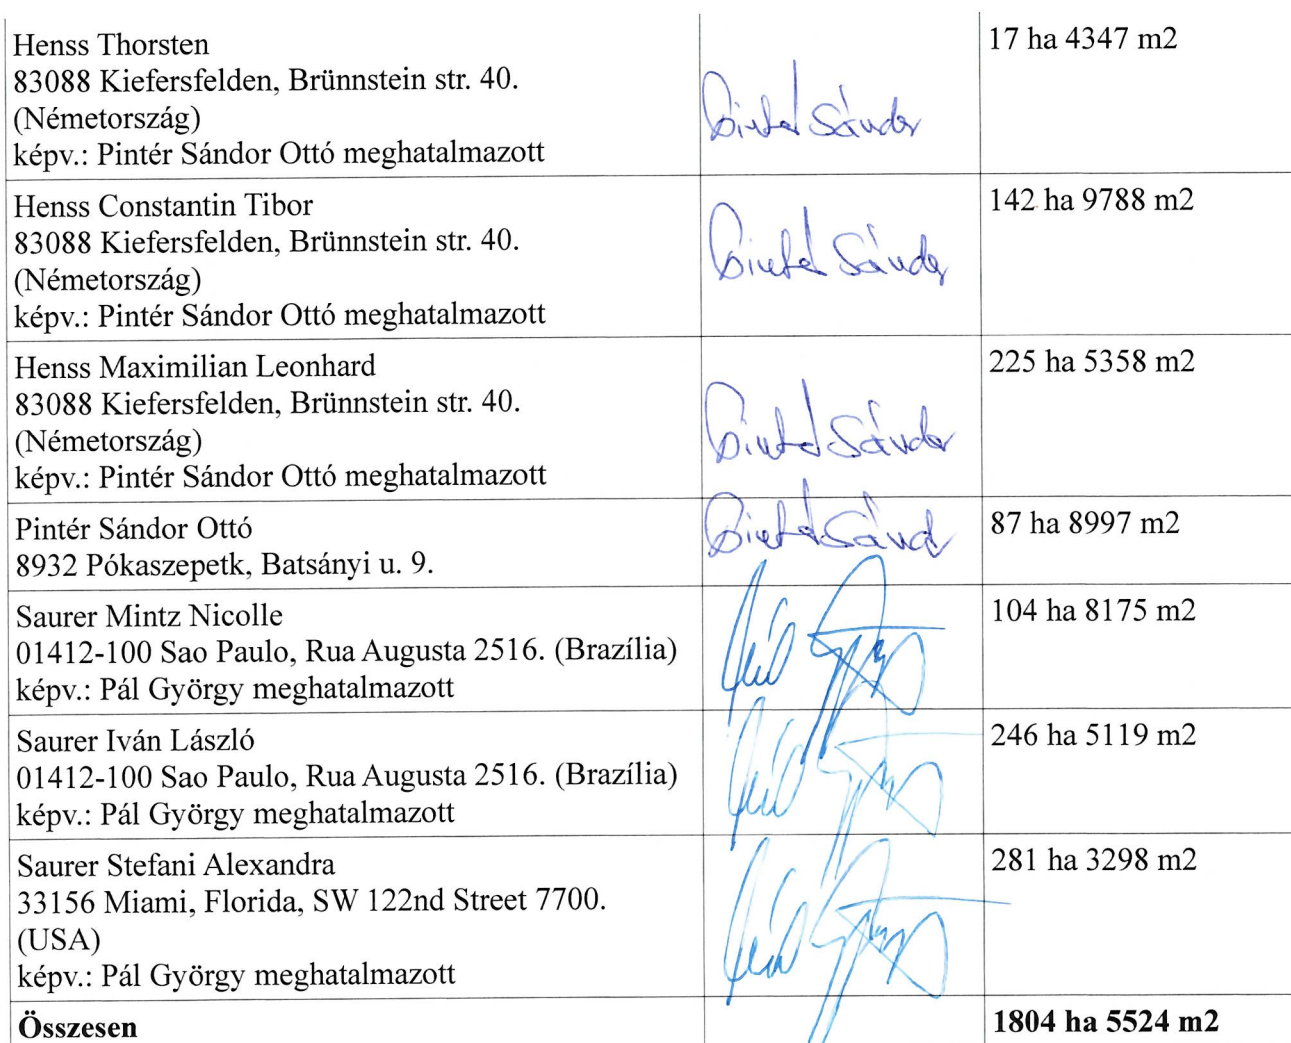 Henss Thorsten
83088 Kiefersfelden, Brünnstein str. 40.
(Németország)
képv.: Pintér Sándor Ottó meghatalmazott
Pintér Sándor
17 ha 4347 m2
Henss Constantin Tibor
83088 Kiefersfelden, Brünnstein str. 40.
(Németország)
képv.: Pintér Sándor Ottó meghatalmazott
Pintér Sándor
142 ha 9788 m2
Henss Maximilian Leonhard
83088 Kiefersfelden, Brünnstein str. 40.
(Németország)
képv.: Pintér Sándor Ottó meghatalmazott
Pintér Sándor
225 ha 5358 m2
Pintér Sándor Ottó
8932 Pókaszepetk, Batsányi u. 9.
Pintér Sándor
87 ha 8997 m2
Saurer Mintz Nicolle
01412-100 Sao Paulo, Rua Augusta 2516. (Brazília)
képv.: Pál György meghatalmazott
104 ha 8175 m2
Saurer Iván László
01412-100 Sao Paulo, Rua Augusta 2516. (Brazília)
képv.: Pál György meghatalmazott
246 ha 5119 m2
Saurer Stefani Alexandra
33156 Miami, Florida, SW 122nd Street 7700.
(USA)
képv.: Pál György meghatalmazott
281 ha 3298 m2
Összesen
1804 ha 5524 m2